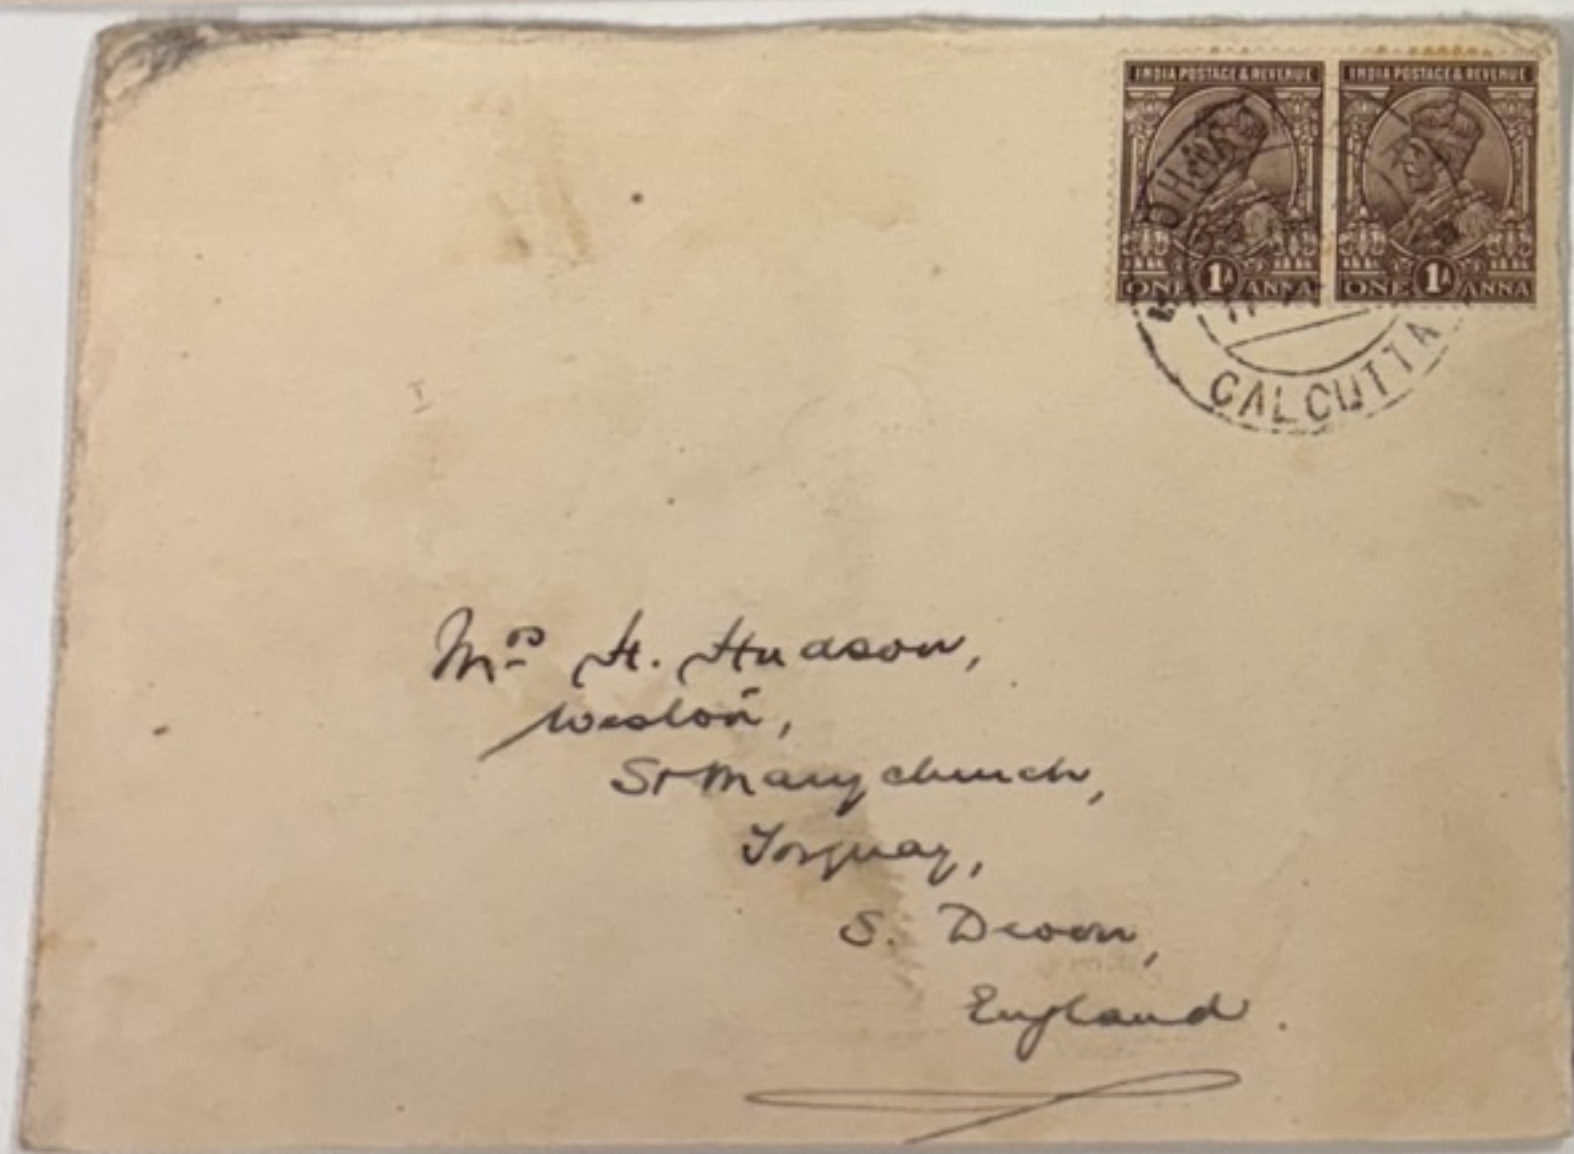 INDIA POSTAGE & REVENUE INDIA POSTAGE & REVENUE
ONE 1A ANNA ONE 1A ANNA
CALCUTTA
Mrs H. Hudson,
Weston,
St Mary church,
Torquay,
S. Devon,
England.